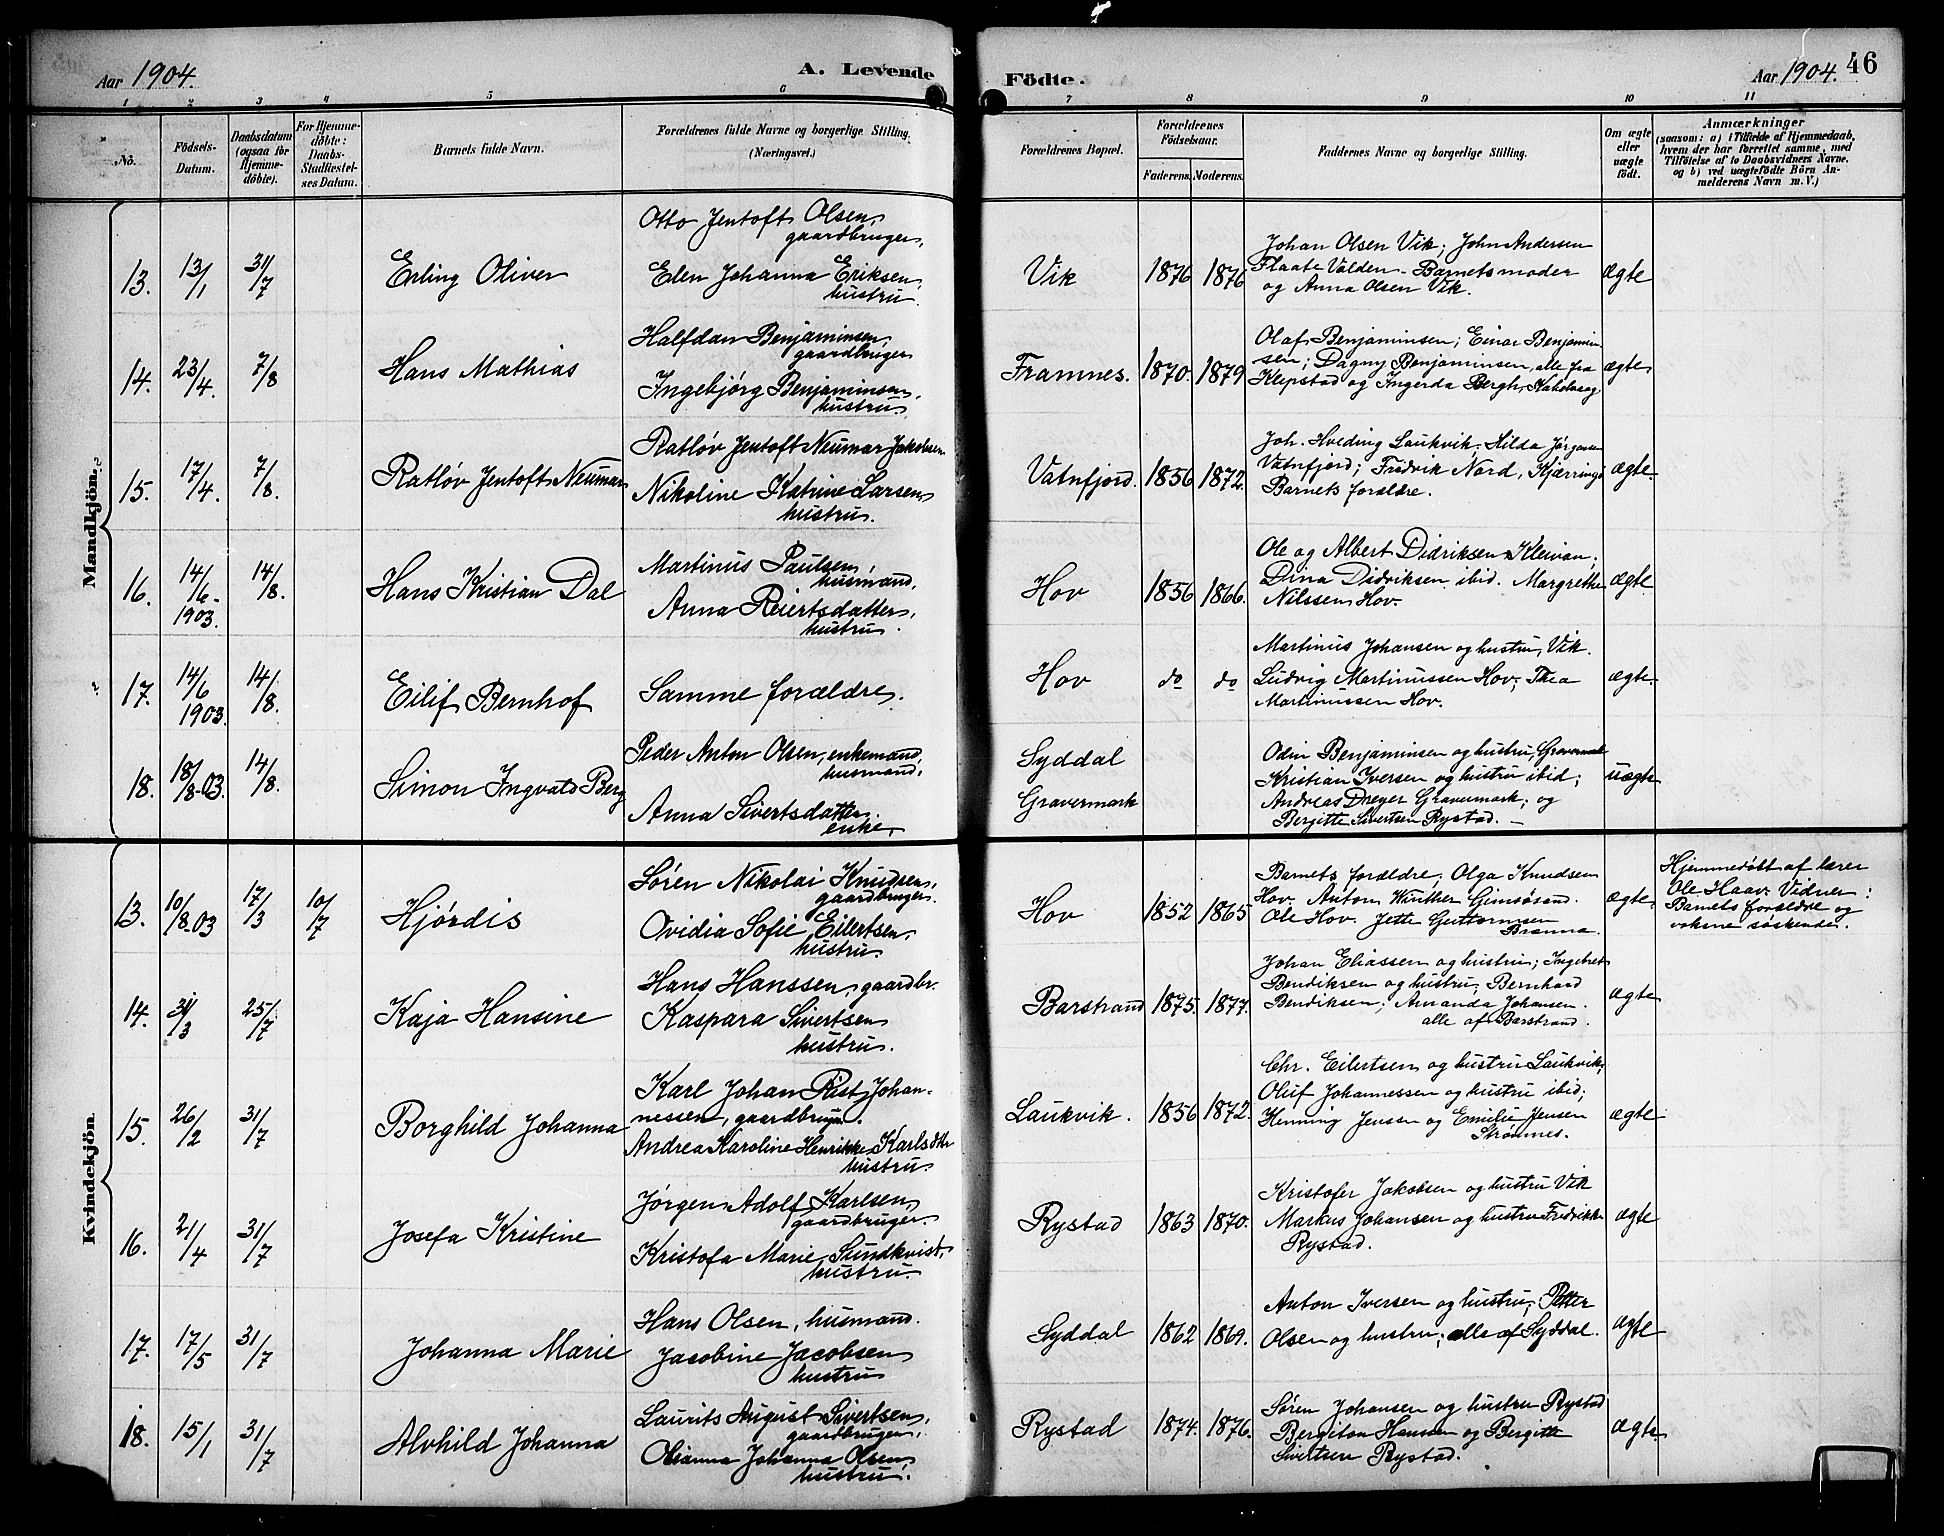 Aar 1904. A. Levende Födte. Aar 1904. 46
1 2 3 4 5 6 7 8 9 10 11
No.
Födsels-
Datum.
Daabsdatum
(ogsaa for
Hjemme-
döbte).
For Hjemme-
döbte:
Daabs-
Stadfæstel-
ses Datum.
Barnets fulde Navn.
Forældrenes fulde Navne og borgerlige Stilling.
(Næringsvei.)
Forældrenes Bopæl.
Forældrenes
Födselsaar.
Faderens. Moderens.
Faddernes Navne og borgerlige Stilling.
Om ægte
eller
uægte
födt.
Anmærkninger
(saasom: a) i Tilfælde af Hjemmedaab,
hvem der har forrettet samme, med
Tilföielse af to Daabsvidners Navne.
og b) ved uægtefödte Börn An-
melderens Navn m. V.)
Mandkjön.
13. 13/1 31/7 Erling Oliver
Otto Jentoft Olsen,
gaardbruger,
Elen Johanna Eriksen,
hustru.
Vik 1876 1876
Johan Olsen Vik; John Andersen
Flaate Valden. Barnets moder
og Anna Olsen Vik.
ægte
14. 23/4. 7/8 Hans Mathias
Halfdan Benjaminsen,
gaardbruger
Ingebjörg Benjaminsen,
hustru.
Framnes. 1870. 1879
Olaf Benjaminsen; Einar Benjamin-
sen; Dagny Benjaminsen, alle fra
Klepstad og Ingerda Bergh,
ægte
15. 17/4. 7/8. Ratlöv Jentoft Neuman
Ratlöv Jentoft Neumar Jakobsen
Nikoline Katrine Larsen,
hustru.
Vatnfjord. 1856 1872.
Joh. Hveding Laukvik; Hilda Jörgensen
Vatnfjord; Fredvik Nord, Kjærringö
Barnets forældre.
ægte
16. 14/6. 1903. 14/8. Hans Kristian Dal
Martinus Paulsen,
husmand,
Anna Reiertsdatter,
hustru.
Hov 1856 1866.
Ole og Albert Didriksen Kleivan;
Dina Didriksen ibid. Margrethe
Nilssen Hov.
ægte
17. 14/6 1903. 14/8. Eilif Bernhof
Samme forældre.
Hov do do
Martinus Johansen og hustru, Vik.
Ludvig Martinussen Hov; Thea
Martinussen Hov.
ægte.
18. 18/8-03. 14/8. Simon Ingvald Berg
Peder Anton Olsen, enkemand,
husmand,
Anna Sivertsdatter,
enke,
Syddal
Gravermark
Odin Benjaminsen og hustru, Gravermark
Kristian Iversen og hustru ibid;
Andreas Dreyer Gravermark; og
Bergitte Sivertsen Rystad. —
uægte
Kvindekjön.
13. 10/8.03 17/3 10/7 Hjördis
Sören Nikolai Knudsen,
gaardbruger.
Ovidia Sofie Eilertsen,
hustru.
Hov 1852 1865
Barnets forældre; Olga Knudsen
Hov. Anton Winther Gimsösand.
Ole Hov. Jette Guttormsen
Brenna.
ægte.
Hjemmedöbt af lærer
Ole Haav. Vidner:
Barnets forældre og
voksne söskende.
14. 31/3 25/7 Kaja Hansine
Hans Hanssen, gaardbr.
Kaspara Sivertsen
hustru.
Barstrand 1875. 1877.
Johan Eliassen og hustru; Ingebret
Bendiksen og hustru, Bernhard
Bendiksen; Amanda Johansen.
alle af Barstrand.
ægte
15. 26/2 31/7 Borghild Johanna
Karl Johan Rist Johan-
nessen, gaardbruger.
Andrea Karoline Henrikke Karlsdtr
hustru.
Laukvik. 1856 1872.
Chr. Eilertsen og hustru Laukvik;
Oluf Johannessen og hustru ibid;
Henning Jensen og Emilie Jensen
Strömnes.
ægte
16. 21/4 31/7 Josefa Kristine
Jörgen Adolf Karlsen,
gaardbruger.
Kristofa Marie Sundkvist,
hustru.
Rystad 1863 1870.
Kristofer Jakobsen og hustru Vik
Markus Johansen og hustru Fredrikke
Rystad.
ægte
17. 17/5 31/7 Johanna Marie
Hans Olsen, husmand.
Jacobine Jacobsen
hustru
Syddal 1862 1869.
Anton Iversen og hustru; Petter
Olsen og hustru; alle af Syddal.
ægte
18. 15/1 31/7 Alvhild Johanna
Laurits August Sivertsen,
gaardbruger.
Olianna Johanna Olsen,
hustru.
Rystad 1874. 1876.
Sören Johansen og hustru Rystad
Bergiton Hansen og Bergitte
Sivertsen Rystad.
ægte.